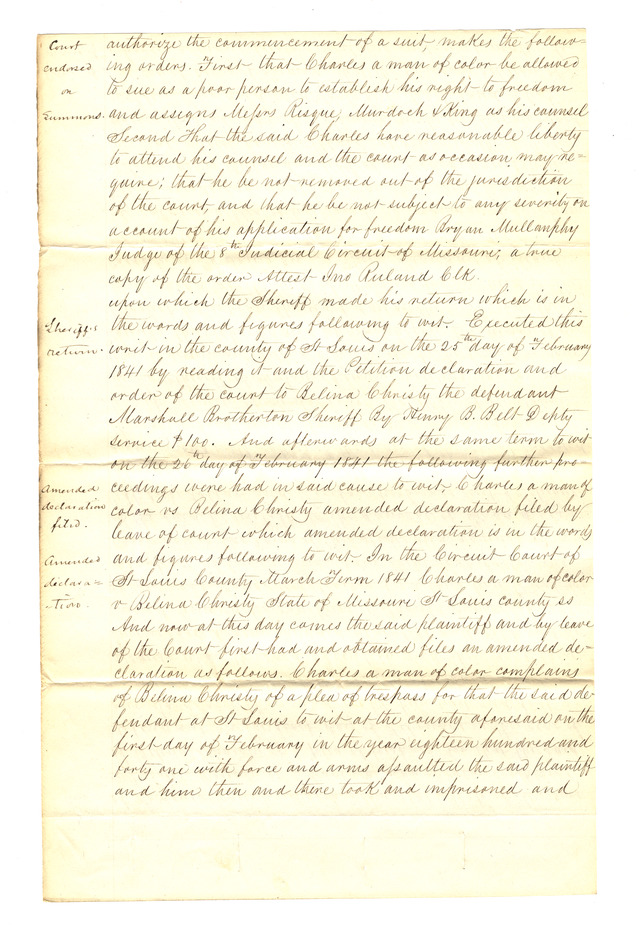 Court
endorsed
on
Summons.
authorize the commencement of a suit, makes the follow=
ing orders. First that Charles a man of color be allowed
to sue as a poor person to establish his right to freedom
and assigns Messrs Risque, Murdoch & King as his counsel
Second That the said Charles have reasonable liberty
to attend his counsel and the court as occasion may re=
quire; that he be not removed out of the jurisdiction
of the court, and that he be not subject to any severity on
account of his application for freedom Bryan Mullanphy
Judge of the 8th Judicial Circuit of Missouri; a true
copy of the order Attest Jno Ruland Clk.
upon which the Sheriff made his return which is in
Sheriff's
return.
the words and figures following to wit. Executed this
writ in the county of St Louis on the 25th day of February
1841 by reading it and the Petition declaration and
order of the court to Belina Christy the defendant
Marshall Brotherton Sheriff By Henry B. Belt Depty
service $1.00. And afterwards at the same term to wit
on the 26th day of February 1841 the following further pro=
Amended
declaration
filed.
ceedings were had in said cause to wit. Charles a man of
color vs Belina Christy amended declaration filed by
leave of court which amended declaration is in the words
Amended
declara=
tion.
and figures following to wit. In the Circuit Court of
St Louis County March Term 1841 Charles a man of color
v Belina Christy State of Missouri St Louis county ss
And now at this day comes the said plaintiff and by leave
of the Court first had and obtained files an amended de=
claration as follows. Charles a man of color complains
of Belina Christy of a plea of trespass for that the said de=
fendant at St Louis to wit at the county aforesaid on the
first day of February in the year eighteen hundred and
forty one with force and arms assaulted the said plaintiff
and him then and there took and imprisoned and